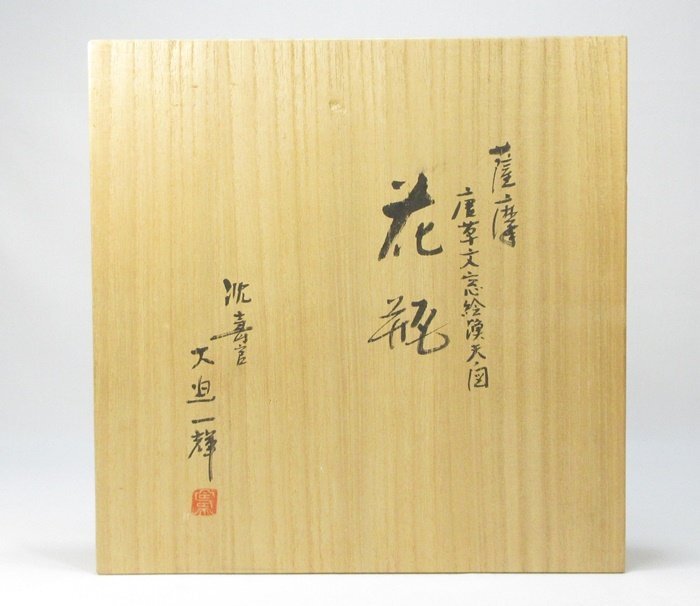 薩摩
唐草文窓絵漢天図
花瓶
沈壽官
大迫一輝